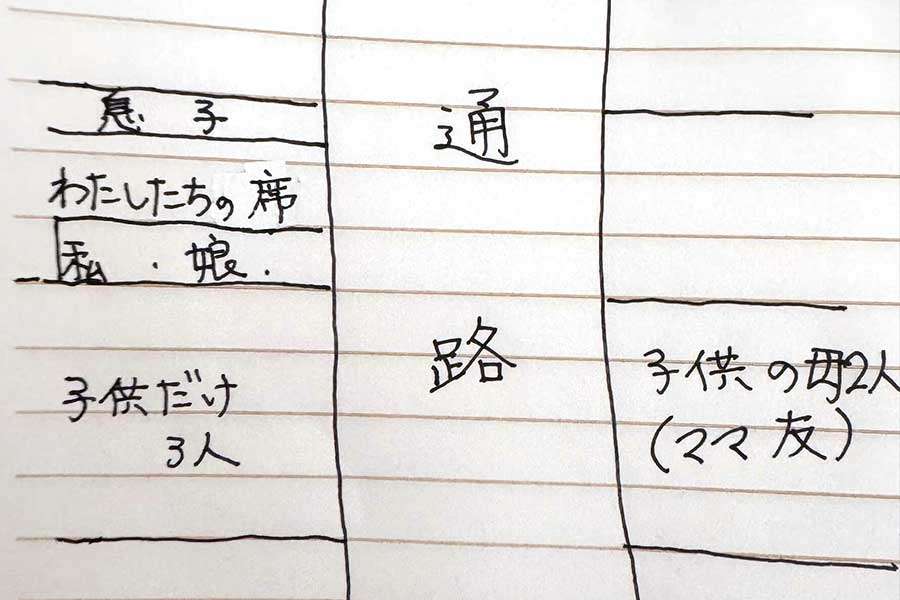 息 子
わたしたちの席
私 ・ 娘 ・
子供だけ
3人
通
路
子供の母2人
(ママ友)